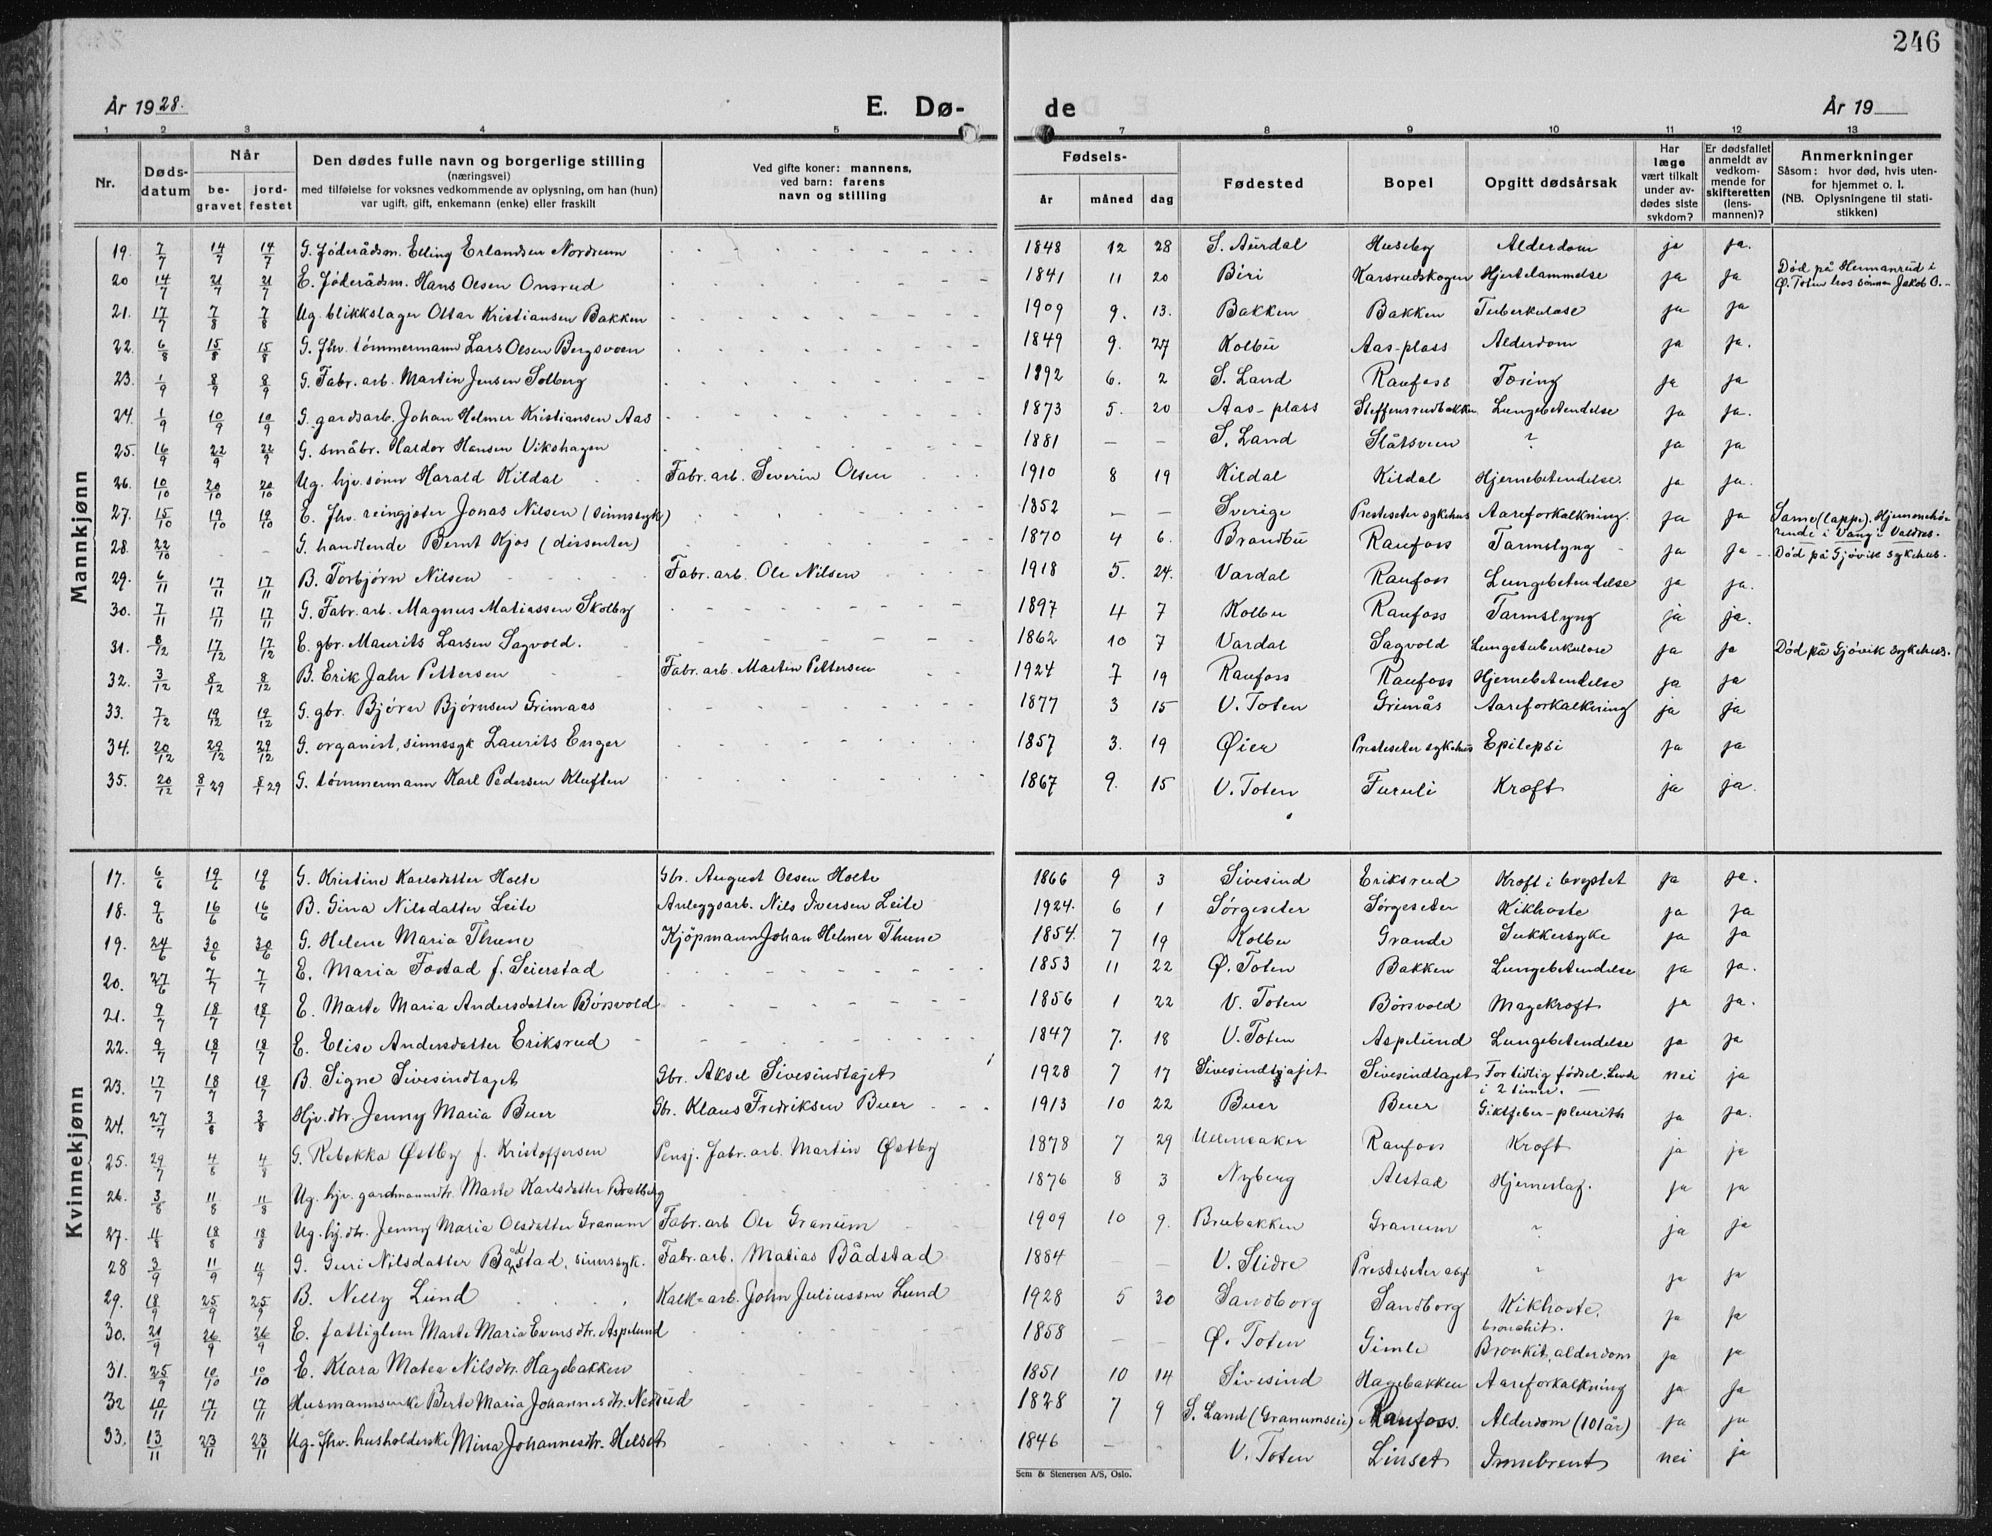 246
År 1928.
E. Dø-
de
År 19
1 2 3 4 5 7 8 9 10 11 12 13
Nr.
Døds-datum
Når
be-gravet
jord-festet
Den dødes fulle navn og borgerlige stilling
(næringsvei)
med tilføielse for voksnes vedkommende av oplysning, om han (hun)
var ugift, gift, enkemann (enke) eller fraskilt
Ved gifte koner: mannens,
ved barn: farens
navn og stilling
Fødsels-
år måned dag
Fødested
Bopel
Opgitt dødsårsak
Har læge vært tilkalt under av-dødes siste sykdom?
Er dødsfallet anmeldt av vedkom-mende for skifteretten (lens-mannen)?
Anmerkninger
Såsom: hvor død, hvis uten-
for hjemmet o. l.
(NB. Oplysningene til stati-
stikken)
Mannkjønn
19. 7/7 14/7 14/7 G. føderådsm. Elling Erlandsen Nordrum 1848 12 28 S. Aurdal Huseby Alderdom ja ja.
20 14/7 21/7 21/7 E. føderådsm. Hans Olsen Onsrud 1841 11 20 Biri Karsrudskogen Hjertelammelse ja ja Død på Hermanrud i Ø. Toten hos sønnen Jakob O.
21. 17/7 7/8 7/8 Ug. blikkslager Ottar Kristiansen Bakken 1909 9. 13. Bakken Bakken Tuberkulose ja ja
22. 6/8 15/8 15/8 G. fhv. tømmermann Lars Olsen Bergsveen 1849 9. 27 Kolbu Aas-plass Alderdom ja ja.
23. 1/9 8/9 8/9 G. Fabr. arb. Martin Jensen Solberg 1892 6. 2 S. Land Raufoss Tæring ja ja
24. 1/9 10/9 10/9 G. gardsarb. Johan Helmer Kristiansen Aas 1873 5. 20 Aas-plass Steffensrudbakken Lungebetendelse ja ja.
25. 16/9 22/9 22/9 G. småbr. Haldor Hansen Vikshagen 1881 — — S. Land Slåtsveen ? ja ja
26. 10/10 20/10 20/10 Ug. hjv. sønn Harald Kildal Fabr. arb. Severin Olsen 1910 8 19 Kildal Kildal Hjernebetendelse ja ja.
27. 15/10 19/10 19/10 E. fhv. reingjeter Jonas Nilsen (sinnssyk) 1852 — — Sverige Presteseter sykehus Aareforkalkning. ja ja Same (lapp). Hjemmehørende i Vang i Valdres.
28. 22/10 - - G. handlende Bernt Kjos (dissenter) 1870 4 6. Brandbu Raufoss Tarmslyng ja ja Død på Gjøvik sykehus.
29. 6/11 17/11 17/11 B. Torbjørn Nilsen Fabr. arb. Ole Nilsen 1918 5. 24. Vardal Raufoss Lungebetendelse ja ja.
30. 7/11 17/11 17/11 G. Fabr. arb. Magnus Matiassen Skolby 1897 4 7 Kolbu Raufoss Tarmslyng ja ja.
31. 8/12 17/12 17/12 E. gbr. Maurits Larsen Sagvold. 1862 10 7 Vardal Sagvold Lungetuberkulose ja ja Død på Gjøvik sykehus.
32. 3/12 8/12 8/12 B. Erik Jahr Pettersen Fabr. arb. Martin Pettersen 1924 7 19 Raufoss Raufoss Hjernebetendelse ja ja
33. 7/12 19/12 19/12 G. gbr. Bjørn Bjørnsen Grimaas 1877 3 15 V. Toten Grimås Aareforkalkning ja ja
34. 20/12 29/12 29/12 G. organist, sinnssyk Laurits Enger 1857 3. 19 Øier Presteseter sykehus Epilepsi ja ja
35. 20/12 8/1 29 8/1 29 G. tømmermann Karl Pedersen Kluften 1867 9. 15 V. Toten Furuli Kræft ja ja.
Kvinnekjønn
17. 6/6 19/6 19/6 G. Kristine Karlsdatter Holte Gbr. August Olsen Holte 1866 9 3 Sivesind Eriksrud Kræft i brystet ja ja.
18. 9/6 16/6 16/6 B. Gina Nilsdatter Leite Anleggsarb. Nils Iversen Leite 1924. 6 1 Sørgeseter Sørgeseter Kikhoste ja ja
19. 24/6 30/6 30/6 G. Helene Maria Thune Kjøpmann Johan Helmer Thune 1854. 7 19 Kolbu Grande Sukkersyke ja ja
20. 27/6 7/7 7/7 E. Maria Fostad f. Seierstad 1853 11 22 Ø. Toten Bakken Lungebetendelse ja ja.
21. 9/7 18/7 18/7 E. Marte Maria Andersdatter Børsvold 1856 1 22 V. Toten Børsvold Magekræft ja ja.
22. 9/7 18/7 18/7 E. Elise Andersdatter Eriksrud 1847 7. 18 V. Toten Aspelund Lungebetendelse ja ja
23. 17/7 18/7 18/7 B. Signe Sivesindtajet Gbr. Aksel Sivesindtajet 1928 7 17 Sivesindtajet Sivesindtajet For tidlig fødsel. Levde i 2 timer. nei ja
24. 27/7 3/8 3/8 Hjv. dtr. Jenny Maria Buer Gbr. Klaus Fredriksen Buer 1913 10 22 Buer Buer Giktfeber-pleurith ja ja.
25. 29/7 4/8 4/8 G. Rebekka Østby f. Kristoffersen Pensj. fabr. arb. Martin Østby 1878 7 29 Ullensaker Raufoss Kræft ja ja
26. 3/8 11/8 11/8 Ug. hjv. gardmannsdtr. Marte Karlsdatter Bratberg 1876 8 3 Nyberg Alstad Hjerneslag. ja ja
27. 11/8 18/8 18/8 Ug. hj. dtr. Jenny Maria Olsdatter Granum Fabr. arb Ole Granum 1909 10 9. Brubakken Granum ? ja ja
28 3/9 11/9 11/9 G. Guri Nilsdatter Bådstad, sinnssyk. Fabr. arb. Matias Bådstad 1884 — — V. Slidre Presteseter asyl ? ja ja
29. 18/9 25/9 25/9 B. Nelly Lund Kalk-arb. John Juliussen Lund 1928 5 30 Sandborg Sandborg Kikhoste, bronchit. ja ja
30. 21/9 26/9 26/9 E. fattiglem Marte Maria Evensdtr. Aspelund 1858 — — Ø. Toten Gimle Bronkit, alderdom ja ja
31. 25/9 10/10 10/10 E. Klara Matea Nilsdtr. Hagebakken 1851 10 14 Sivesind Hagebakken Aareforkalkning ja ja
32 10/11 17/11 17/11 Husmannsenke Berte Maria Johannesdtr. Nesrud 1828 7 9 S. Land (Granumseie) Raufoss. Alderdom (101 år) ja ja
33. 13/11 23/11 23/11 Ug. fhv. husholderske Mina Johannesdtr. Helset 1846 — — V. Toten Linset Innebrent nei ja
Sem & Stenersen A/S, Oslo.